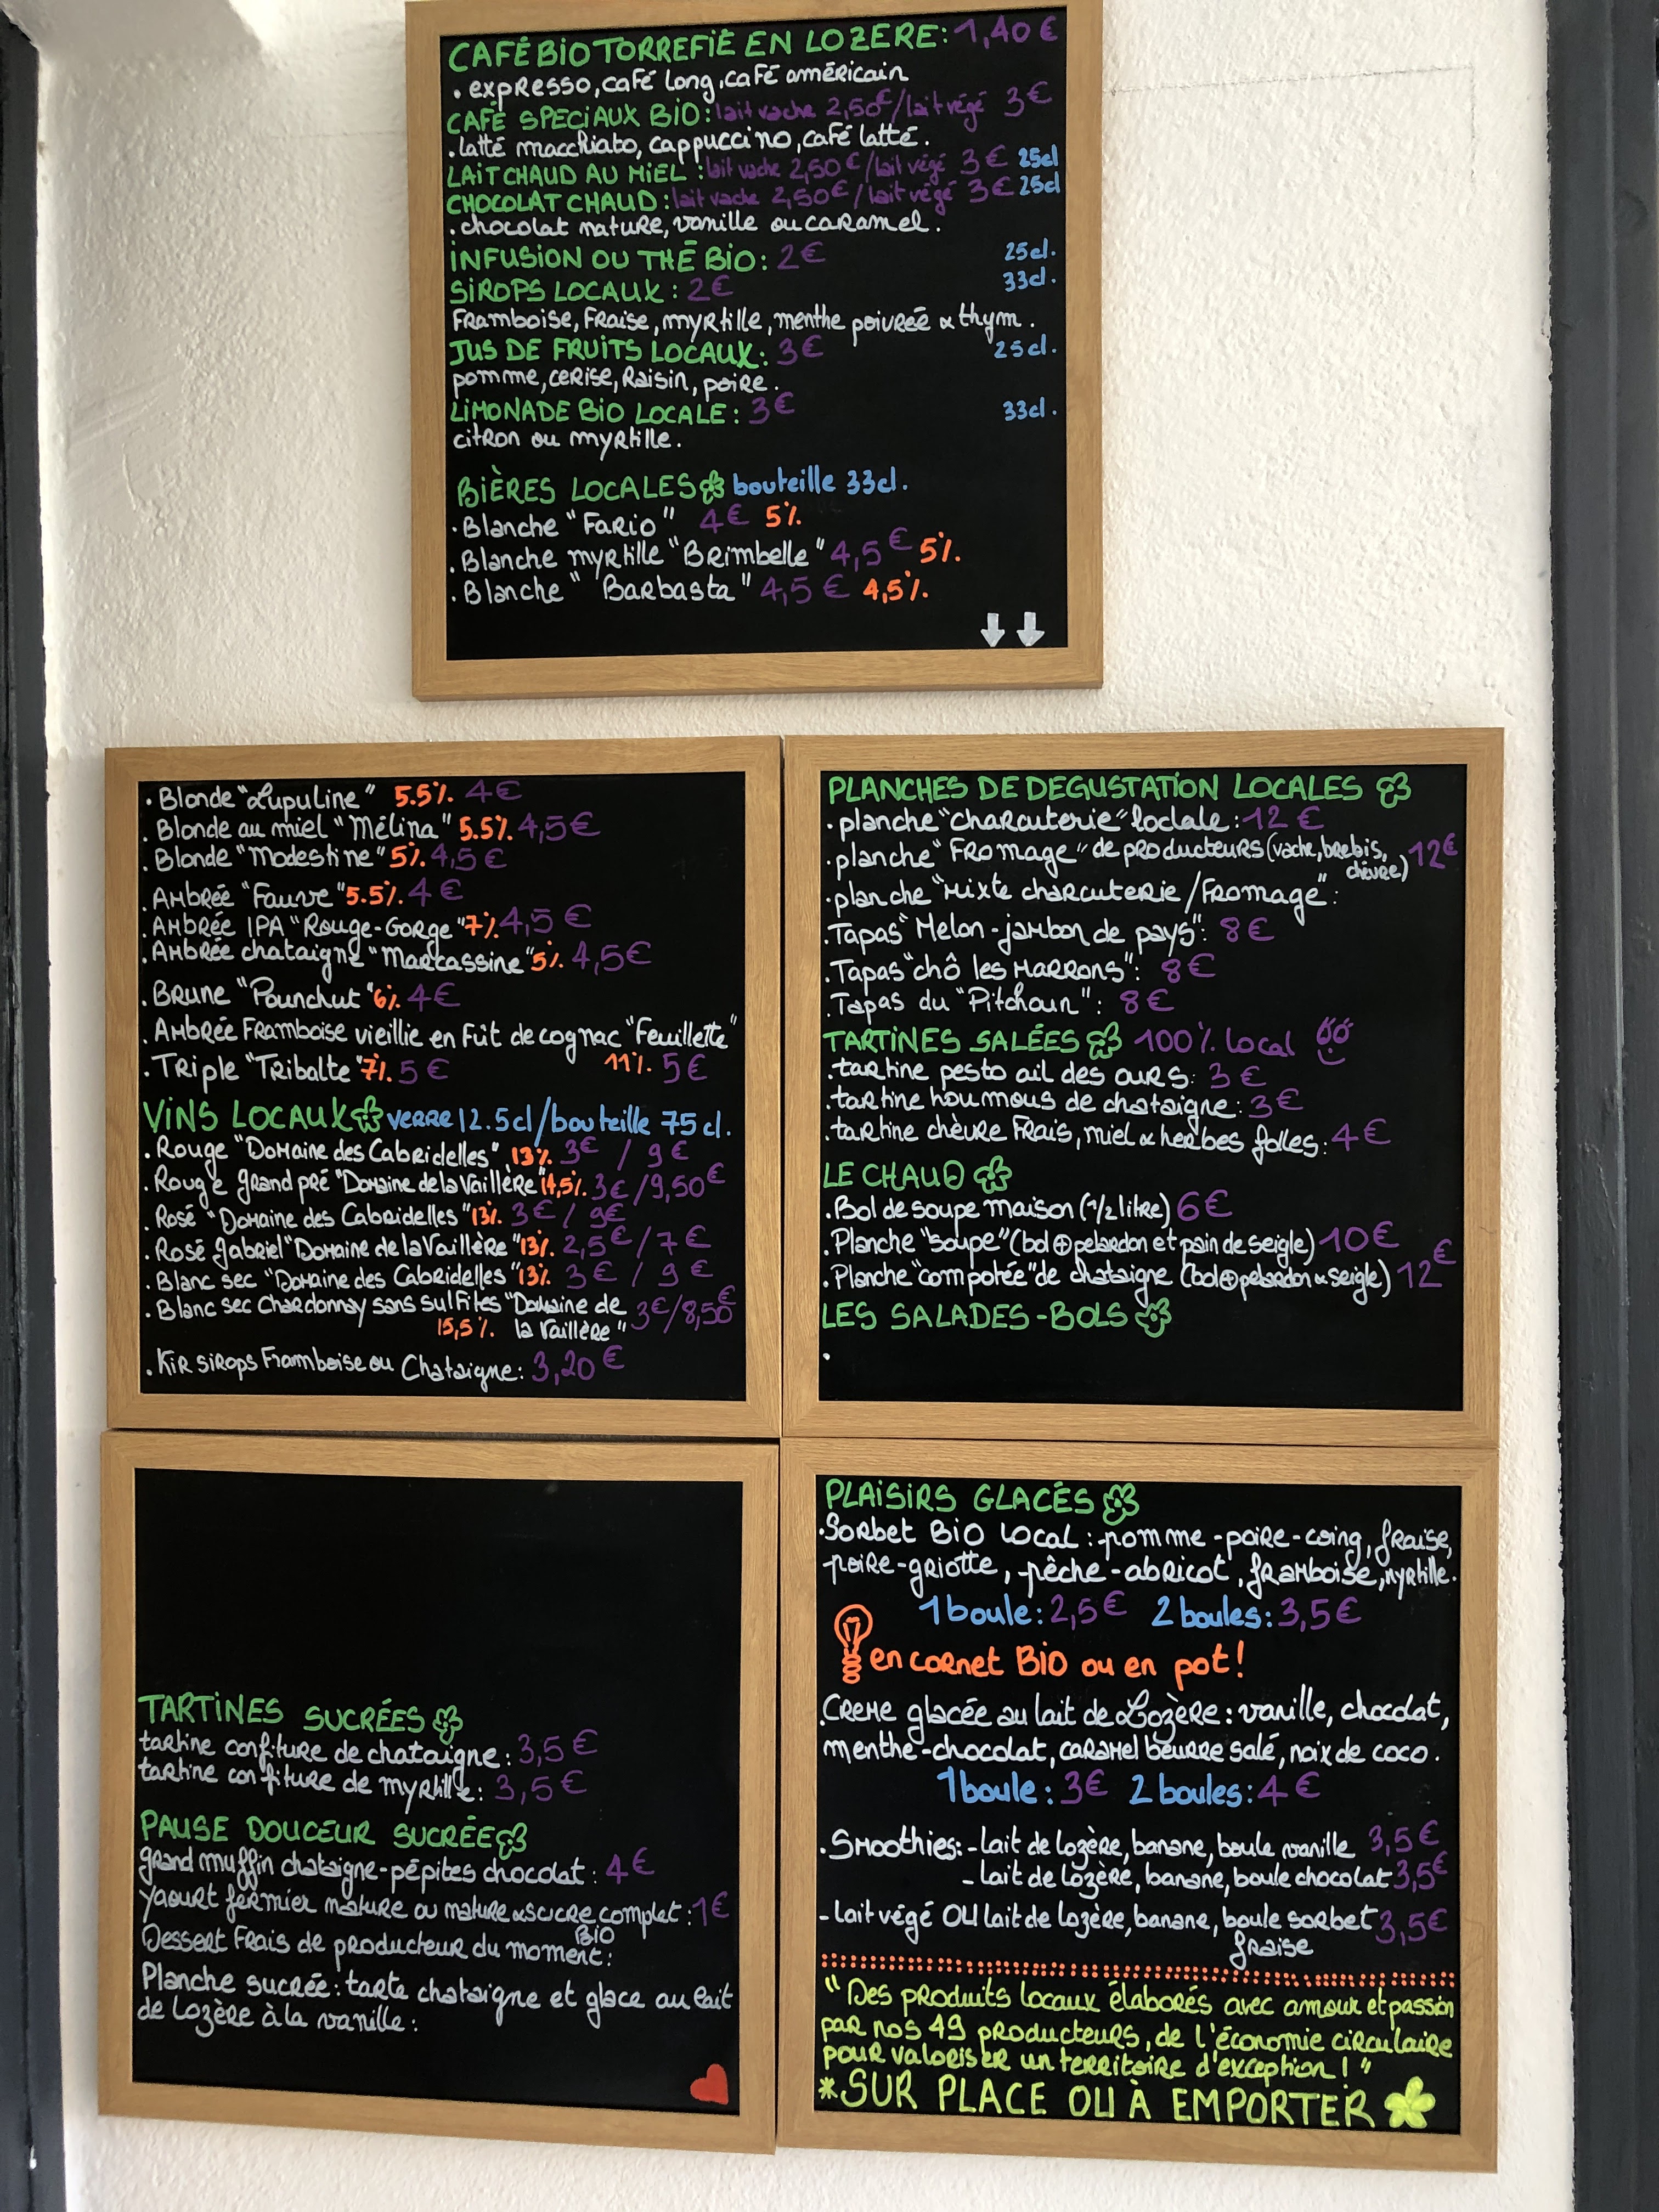 CAFÉ BIO TORREFIÉ EN LOZERE: 1,40 €
. expresso, café long, café américain
CAFÉ SPECIAUX BIO: lait vache 2,50€/lait végé 3€
. latté macchiato, cappuccino, café latté.
LAIT CHAUD AU MIEL : lait vache 2,50 €/lait végé 3€ 25cl
CHOCOLAT CHAUD : lait vache 2,50€/lait végé 3€ 25cl
. chocolat nature, vanille ou caramel.
INFUSION OU THÉ BIO: 2€ 25cl.
SIROPS LOCAUX : 2€ 33cl.
Framboise, Fraise, myrtille, menthe poivreé & thym.
JUS DE FRUITS LOCAUX: 3€ 25cl.
pomme, cerise, Raisin, poire.
LIMONADE BIO LOCALE : 3€ 33cl.
citron ou myrtille.
BIÈRES LOCALES bouteille 33cl.
. Blanche "Fario" 4€ 5%
. Blanche myrtille "Brimbelle" 4,5€ 5%.
. Blanche "Barbasta" 4,5€ 4,5%.
. Blonde "Lupuline" 5.5% 4€
. Blonde au miel "Mélina" 5.5% 4,5€
. Blonde "Modestine" 5% 4,5€
. Ambrée "Fauve" 5.5% 4€
. Ambrée IPA "Rouge-Gorge" 7% 4,5€
. Ambrée chataigne "Marcassine" 5% 4,5€
. Brune "Pounchut" 6% 4€
. Ambrée Framboise vieillie en Fût de cognac "Feuillette"
11% 5€
. Triple "Tribalte" 7% 5€
VINS LOCAUX verre 12.5cl/bouteille 75cl.
. Rouge "Domaine des Cabridelles" 13% 3€ / 9€
. Rouge grand pré "Domaine de la Vaillère" 14,5% 3€/9,50€
. Rosé "Domaine des Cabridelles" 13% 3€ / 9€
. Rosé gabriel "Domaine de la Vaillère" 13% 2,5€/7€
. Blanc sec "Domaine des Cabridelles" 13% 3€ / 9€
. Blanc sec Chardonnay sans sulfites "Domaine de 3€/8,50€
15,5% la Vaillère"
. Kir sirops Framboise ou Chataigne: 3,20€
PLANCHES DE DEGUSTATION LOCALES
. planche "charcuterie" loclale : 12 €
. planche "Fromage" de producteurs (vache, brebis, 12€
chèvre)
. planche "Mixte charcuterie/Fromage":
. Tapas "Melon-jambon de pays": 8€
. Tapas "chô les Marrons": 8€
. Tapas du "Pitchoun": 8€
TARTINES SALÉES 100% local
. tartine pesto ail des ours: 3€
. tartine houmous de chataigne: 3€
. tartine chèvre Frais, miel & herbes folles: 4€
LE CHAUD
. Bol de soupe maison (1/2 litre) 6€
. Planche "soupe" (bol + pelardon et pain de seigle) 10€
. Planche "compotée" de chataigne (bol + pelardon & seigle) 12€
LES SALADES-BOLS
.
TARTINES SUCRÉES
tartine confiture de chataigne : 3,5€
tartine confiture de myrtille : 3,5€
PAUSE DOUCEUR SUCRÉE
grand muffin chataigne-pépites chocolat : 4€
yaourt fermier nature ou nature & sucre complet : 1€
BIO
Dessert Frais de producteur du moment:
Planche sucrée : tarte chataigne et glace au lait
de Lozère à la vanille :
PLAISIRS GLACÉS
. Sorbet BIO local : pomme-poire-coing, fraise,
poire-griotte, pêche-abricot, framboise, myrtille.
1 boule : 2,5€ 2 boules : 3,5€
en cornet BIO ou en pot !
. Creme glacée au lait de Lozère : vanille, chocolat,
menthe-chocolat, caramel beurre salé, noix de coco.
1 boule : 3€ 2 boules : 4€
. Smoothies: - lait de lozère, banane, boule vanille 3,5€
- lait de lozère, banane, boule chocolat 3,5€
- lait végé OU lait de lozère, banane, boule sorbet 3,5€
fraise
" Des produits locaux élaborés avec amour et passion
par nos 49 producteurs, de l'économie circulaire
pour valoriser un territoire d'exception ! "
*SUR PLACE OU À EMPORTER